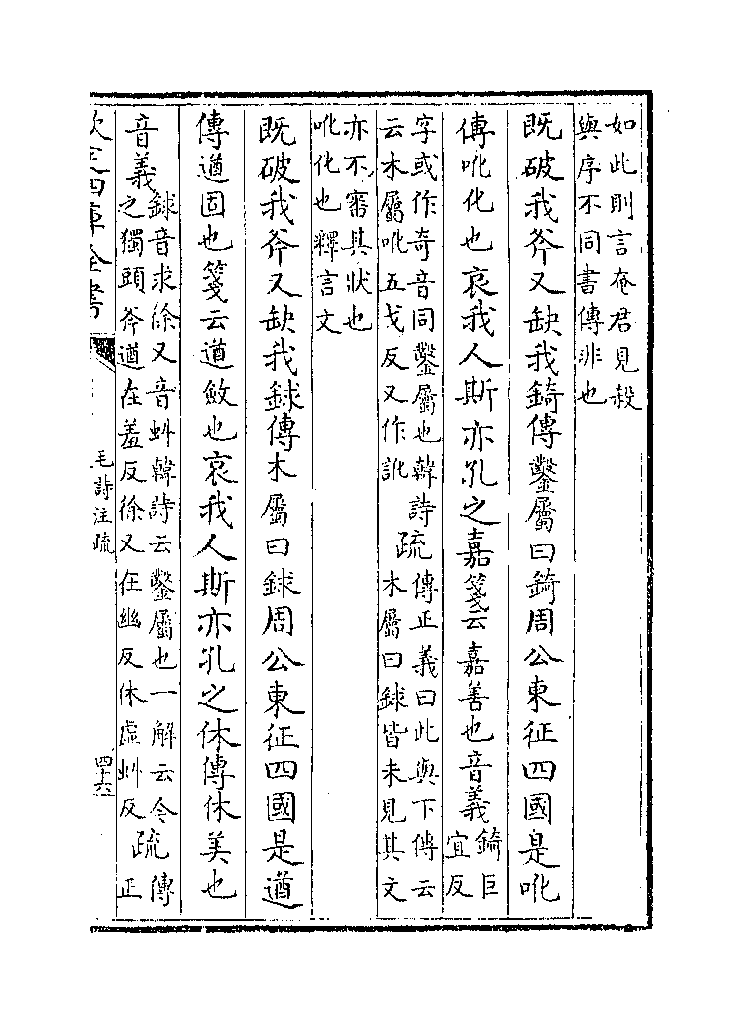 如此則言奄君見殺
與序不同書傳非也
既破我斧又缺我錡傳鑿屬曰錡周公東征四國是吪
傳吪化也哀我人斯亦孔之嘉箋云嘉善也音義錡巨
宜反
字或作奇音同鑿屬也韓詩
云木屬吪五戈反又作訛
疏
傳正義曰此與下傳云
木屬曰銶皆未見其文
亦不審其狀也
吪化也釋言文
既破我斧又缺我銶傳木屬曰銶周公東征四國是遒
傳遒固也箋云遒斂也哀我人斯亦孔之休傳休美也
音義
銶音求徐又音虯韓詩云鑿屬也一解云今
之獨頭斧遒在羞反徐又在幽反休虛虯反
疏
傳
正
欽定四庫全書
毛詩注疏
四十六